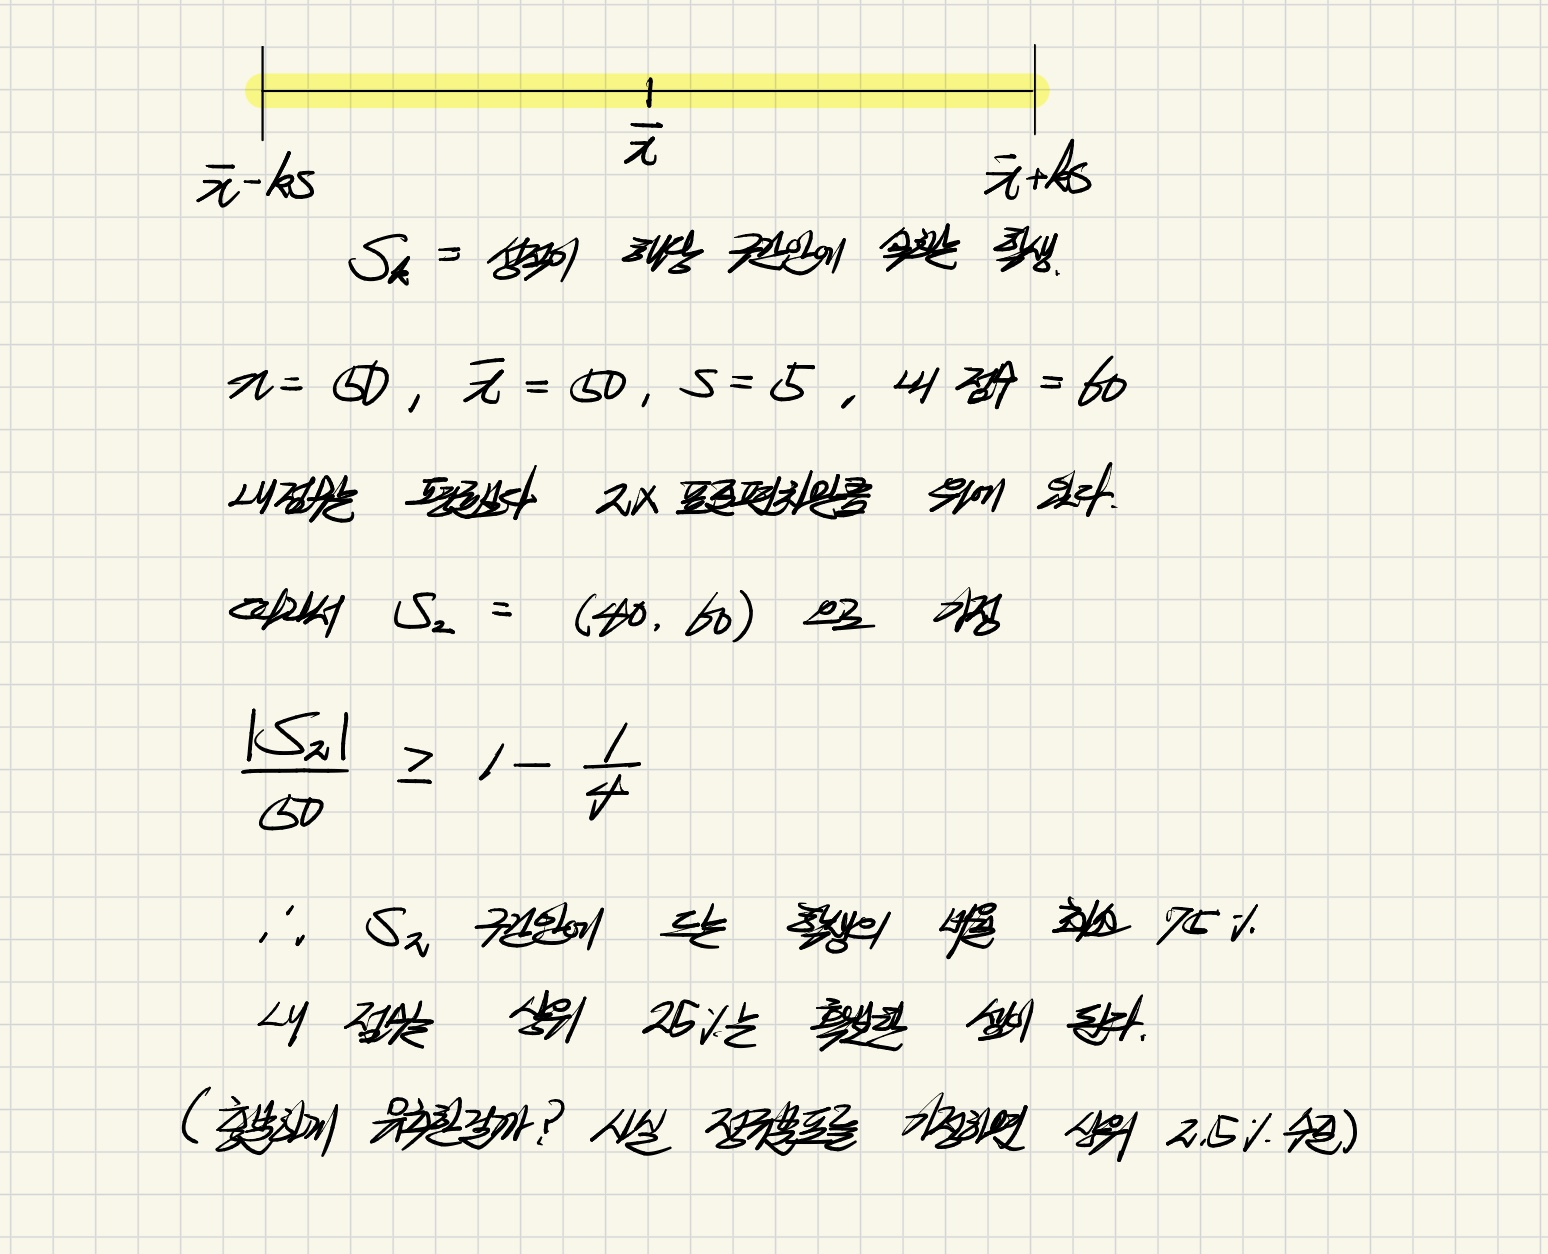 x̄
x̄-ks x̄+ks
Sₖ = 성적이 해당 구간안에 속하는 학생.
n = 50, x̄ = 50, s = 5, 내 점수 = 60
내점수는 평균보다 2x 표준편차만큼 위에 있다.
따라서 S₂ = (40, 60) 으로 가정
|S₂|/50 ≥ 1 - 1/4
∴ S₂ 구간안에 드는 학생의 비율 최소 75%
내 점수는 상위 25%는 확보한 셈이 된다.
( 유추한걸까? 사실 정규분포를 가정하면 상위 2.5% 수준)